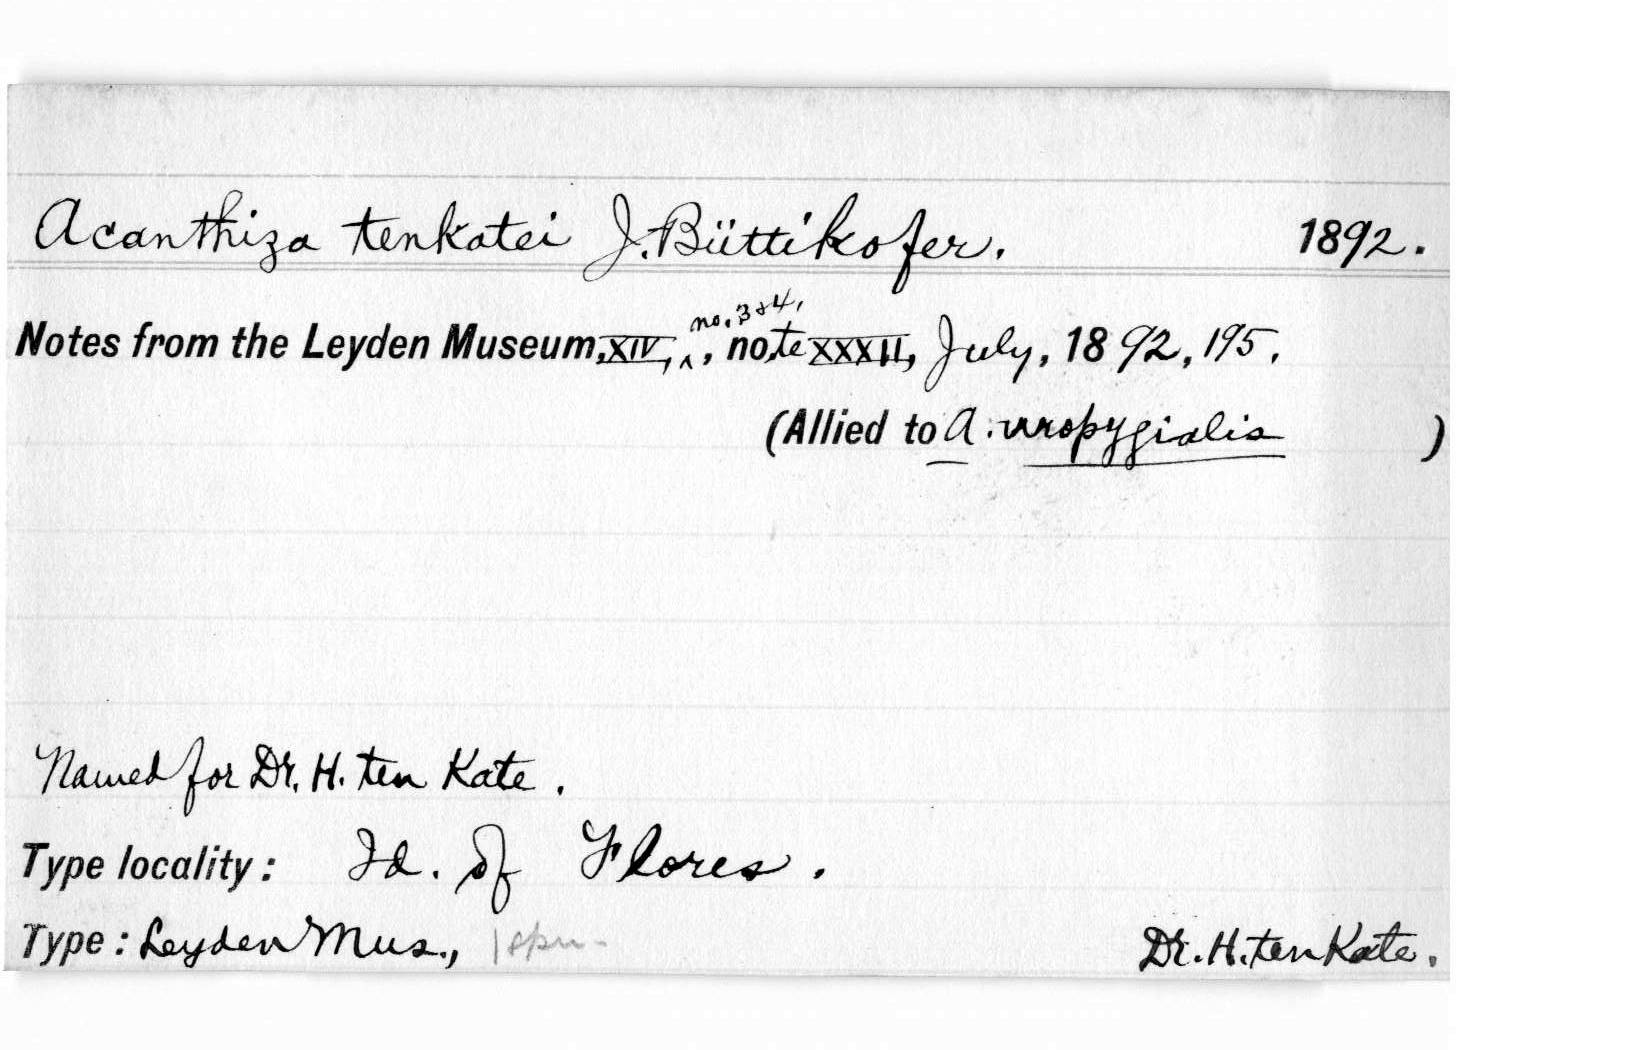 Acanthiza tenkatei J. Büttikofer. 1892.
no. 3 & 4,
Notes from the Leyden Museum, XIV, ^, note XXXII, July, 1892, 195.
(Allied to A. uropygialis )
Named for Dr. H. ten Kate.
Type locality: Id. of Flores.
Type: Leyden Mus., 1 spm. Dr. H. ten Kate.